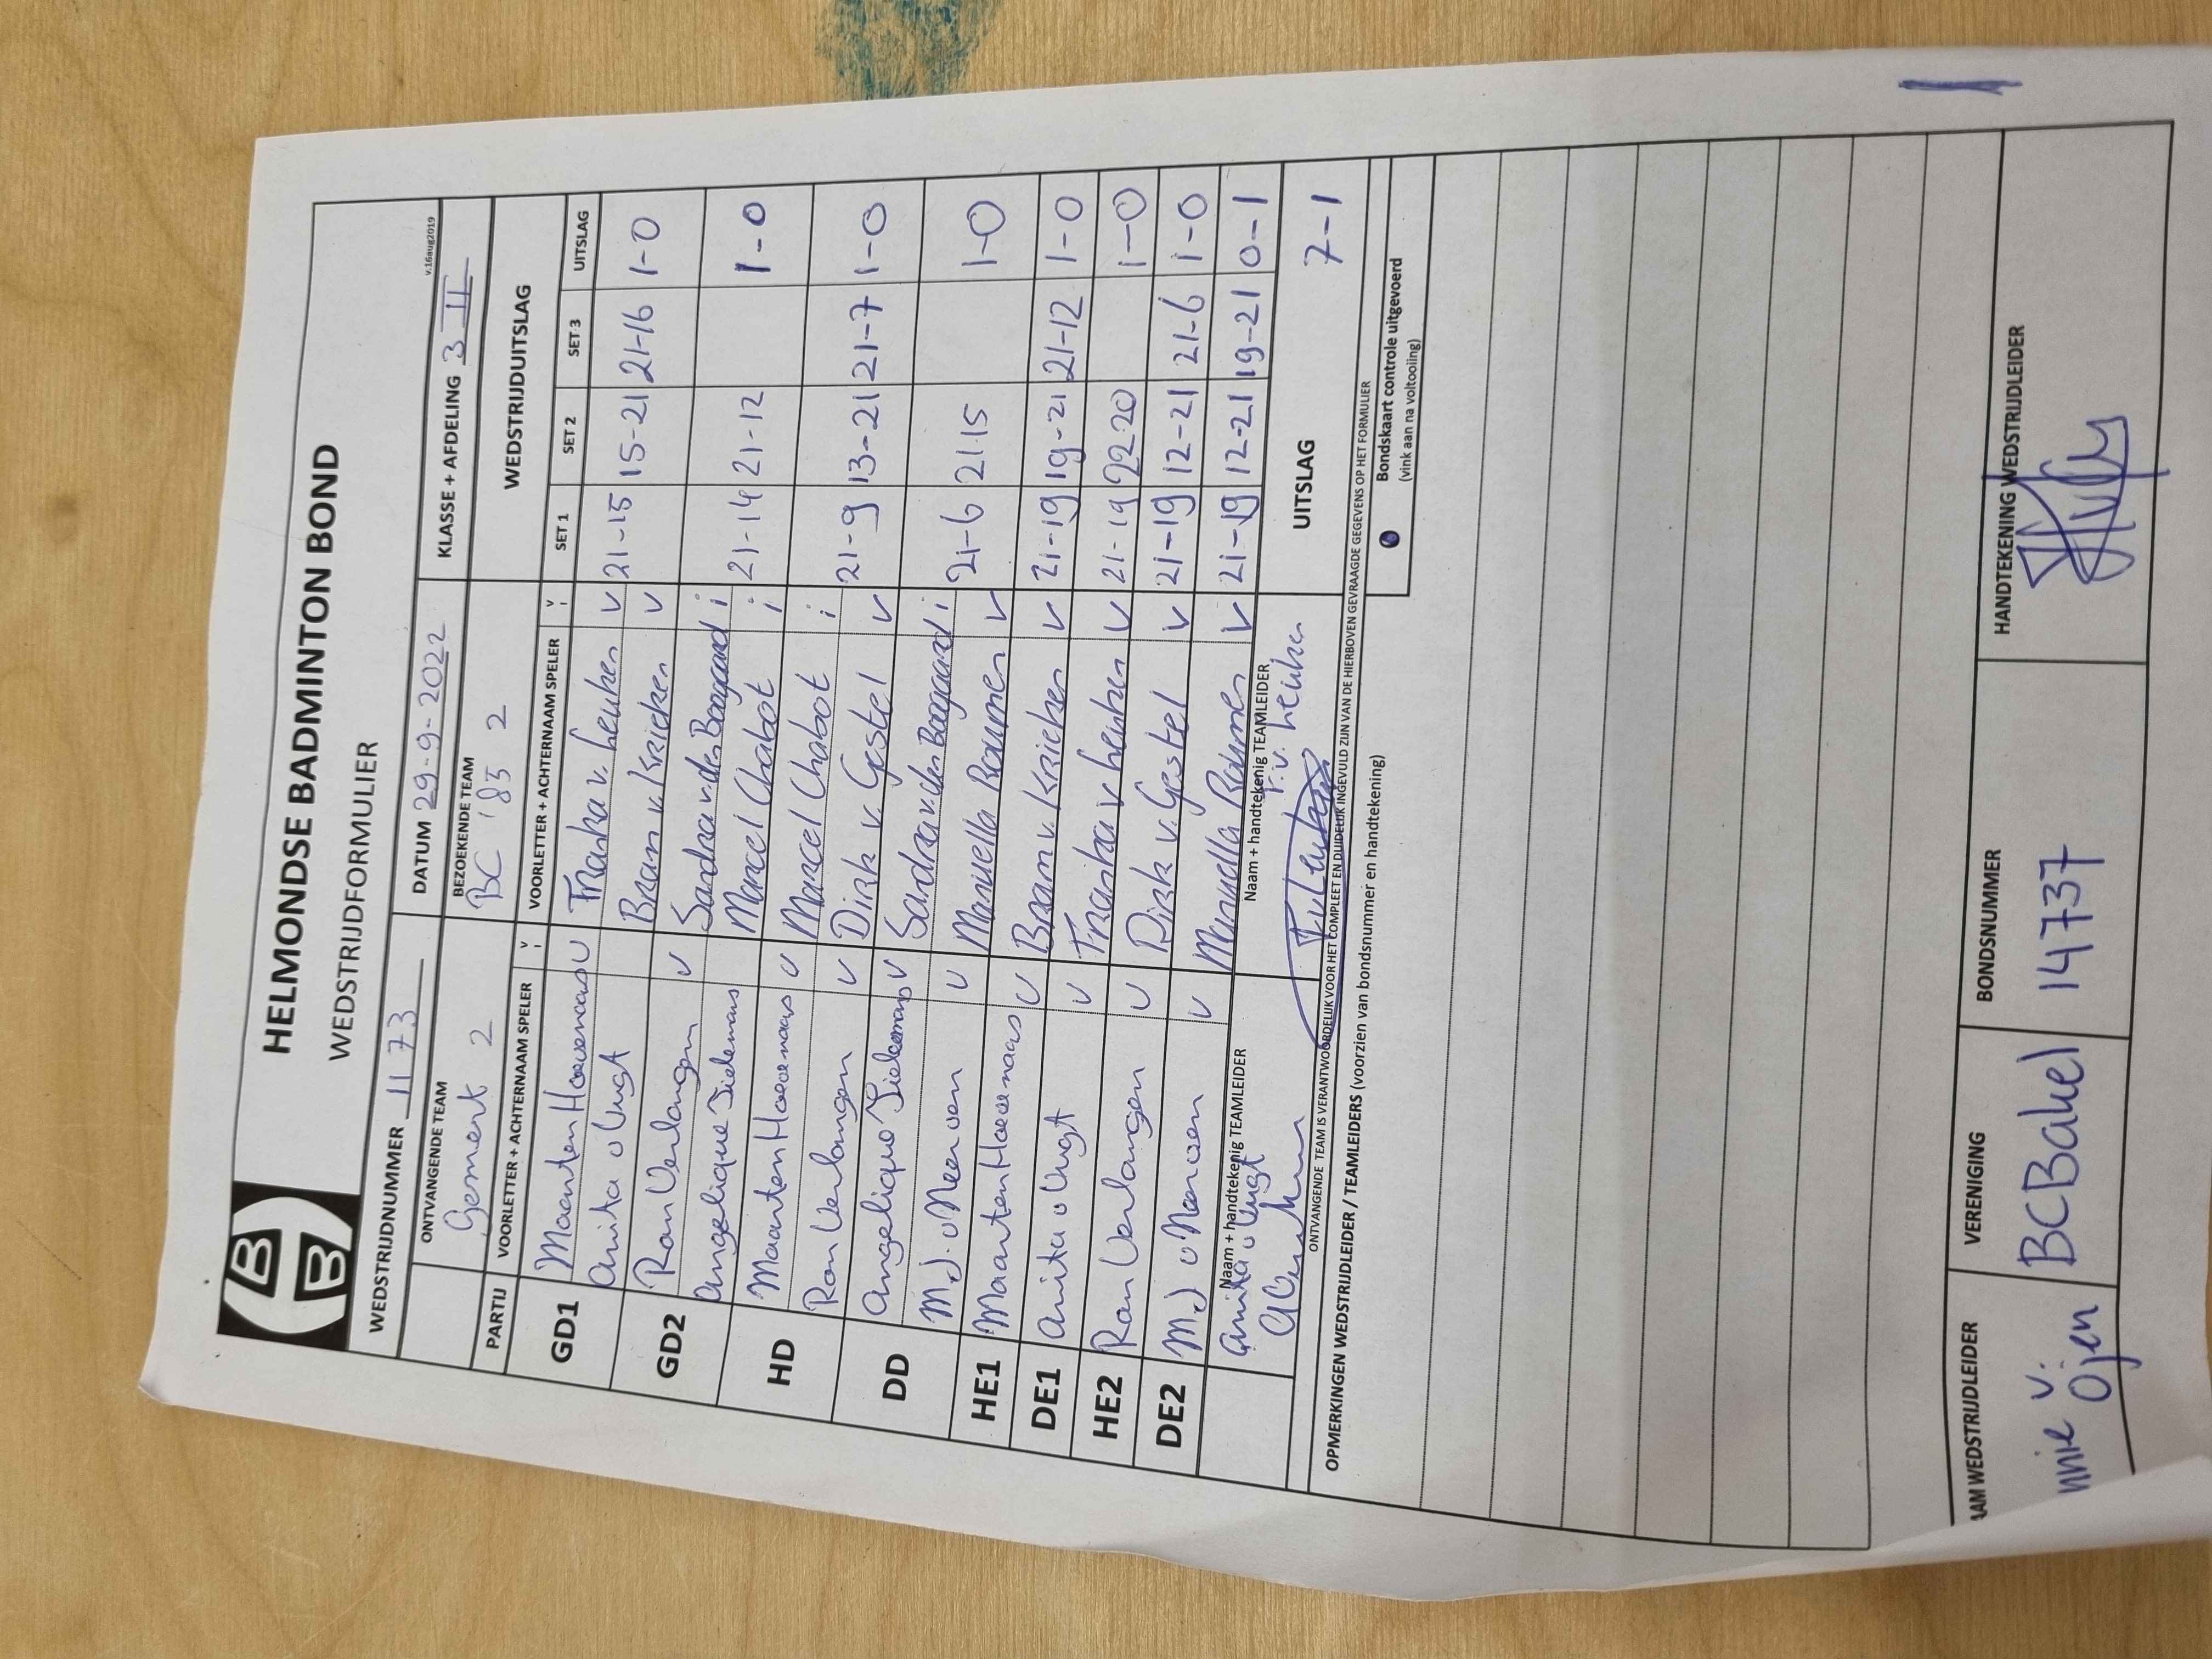 HELMONDSE BADMINTON BOND
WEDSTRIJDFORMULIER
v.16aug2019
WEDSTRIJDNUMMER 1173 DATUM 29-9-2022 KLASSE + AFDELING 3 II
ONTVANGENDE TEAM BEZOEKENDE TEAM WEDSTRIJDUITSLAG
Gemert 2 BC '85 2
PARTIJ VOORLETTER + ACHTERNAAM SPELER V I VOORLETTER + ACHTERNAAM SPELER V I SET 1 SET 2 SET 3 UITSLAG
GD1 Maarten Hoevenaas v Franka v. Leuken v 21-15 15-21 21-16 1-0
Anita v Vugt Bram v. Krieken v
GD2 Ron Verlangen v Sandra v.den Boogaard i 21-14 21-12 1-0
Angelique Tielemans Marcel Chabot i
HD Maarten Hoevenaas v Marcel Chabot i 21-9 13-21 21-7 1-0
Ron Verlangen v Dirk v. Gestel v
DD Angelique Tielemans v Sandra v.den Boogaard i 21-6 21-15 1-0
M.J. v Neerven v Manuella Roumen v
HE1 Maarten Hoevenaas v Bram v. Krieken v 21-19 19-21 21-12 1-0
DE1 Anita v Vugt v Franka v Leuken v 21-19 22-20 1-0
HE2 Ron Verlangen v Dirk v. Gestel v 21-19 12-21 21-6 1-0
DE2 M.J v Neerven v Manuella Roumen v 21-19 12-21 19-21 0-1
Naam + handtekenig TEAMLEIDER Naam + handtekenig TEAMLEIDER UITSLAG 7-1
Anita v Vugt F. v. Leuken
ONTVANGENDE TEAM IS VERANTWOORDELIJK VOOR HET COMPLEET EN DUIDELIJK INGEVULD ZIJN VAN DE HIERBOVEN GEVRAAGDE GEGEVENS OP HET FORMULIER
OPMERKINGEN WEDSTRIJDLEIDER / TEAMLEIDERS (voorzien van bondsnummer en handtekening)
Bondskaart controle uitgevoerd
(vink aan na voltooiing)
AAM WEDSTRIJDLEIDER VERENIGING BONDSNUMMER HANDTEKENING WEDSTRIJDLEIDER
nnie v. Ojen BC Bakel 14737